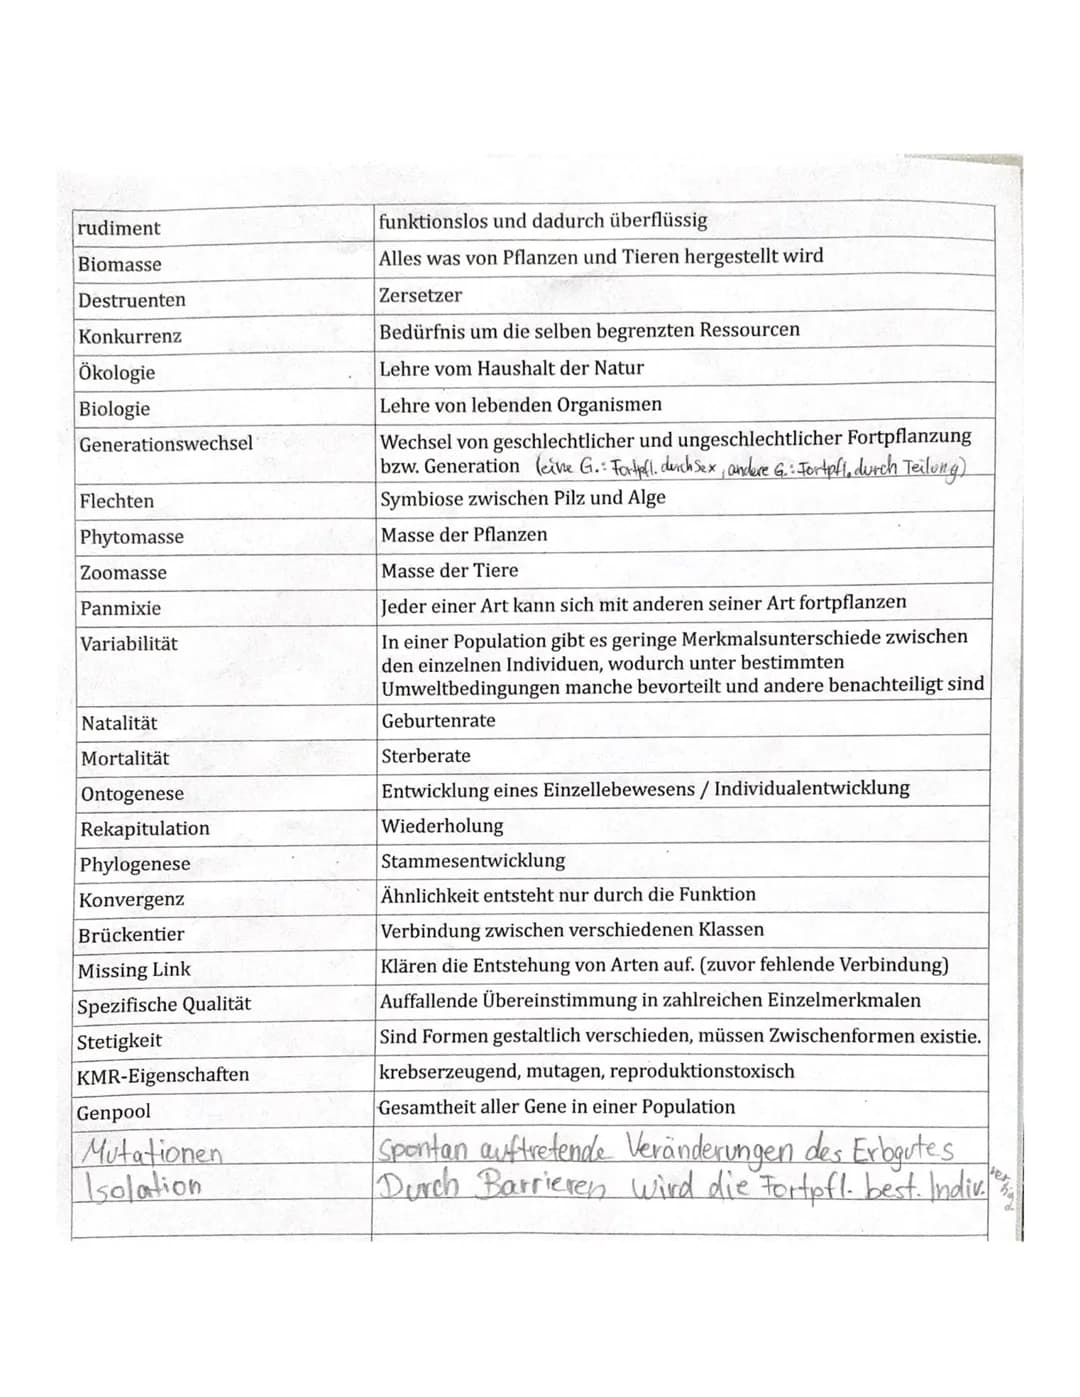 rudiment
funktionslos und dadurch überflüssig
Biomasse
Alles was von Pflanzen und Tieren hergestellt wird
Destruenten
Zersetzer
Konkurrenz
Bedürfnis um die selben begrenzten Ressourcen
Ökologie
Lehre vom Haushalt der Natur
Biologie
Lehre von lebenden Organismen
Generationswechsel
Wechsel von geschlechtlicher und ungeschlechtlicher Fortpflanzung
bzw. Generation (eine G.: Fortpfl. durch Sex, andere G.: Fortpfl. durch Teilung)
Flechten
Symbiose zwischen Pilz und Alge
Phytomasse
Masse der Pflanzen
Zoomasse
Masse der Tiere
Panmixie
Jeder einer Art kann sich mit anderen seiner Art fortpflanzen
Variabilität
In einer Population gibt es geringe Merkmalsunterschiede zwischen
den einzelnen Individuen, wodurch unter bestimmten
Umweltbedingungen manche bevorteilt und andere benachteiligt sind
Natalität
Geburtenrate
Mortalität
Sterberate
Ontogenese
Entwicklung eines Einzellebewesens / Individualentwicklung
Rekapitulation
Wiederholung
Phylogenese
Stammesentwicklung
Konvergenz
Ähnlichkeit entsteht nur durch die Funktion
Brückentier
Verbindung zwischen verschiedenen Klassen
Missing Link
Klären die Entstehung von Arten auf. (zuvor fehlende Verbindung)
Spezifische Qualität
Auffallende Übereinstimmung in zahlreichen Einzelmerkmalen
Stetigkeit
Sind Formen gestaltlich verschieden, müssen Zwischenformen existie.
KMR-Eigenschaften
krebserzeugend, mutagen, reproduktionstoxisch
Genpool
Gesamtheit aller Gene in einer Population
Mutationen
Spontan auftretende Veränderungen des Erbgutes
Isolation
Durch Barrieren wird die Fortpfl. best. Indiv.